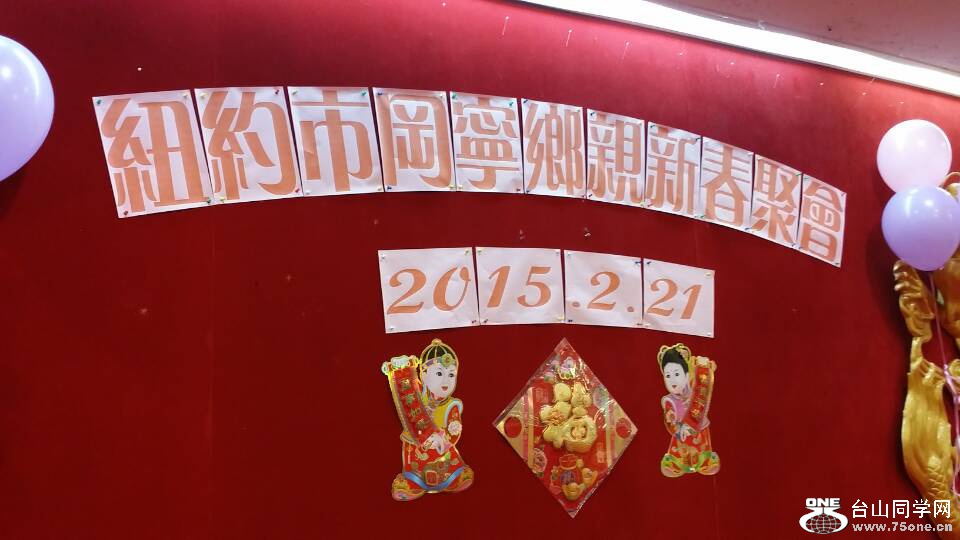 紐約市岡寧鄉親新春聚會
2015.2.21
ONE
台山同学网
www.75one.cn